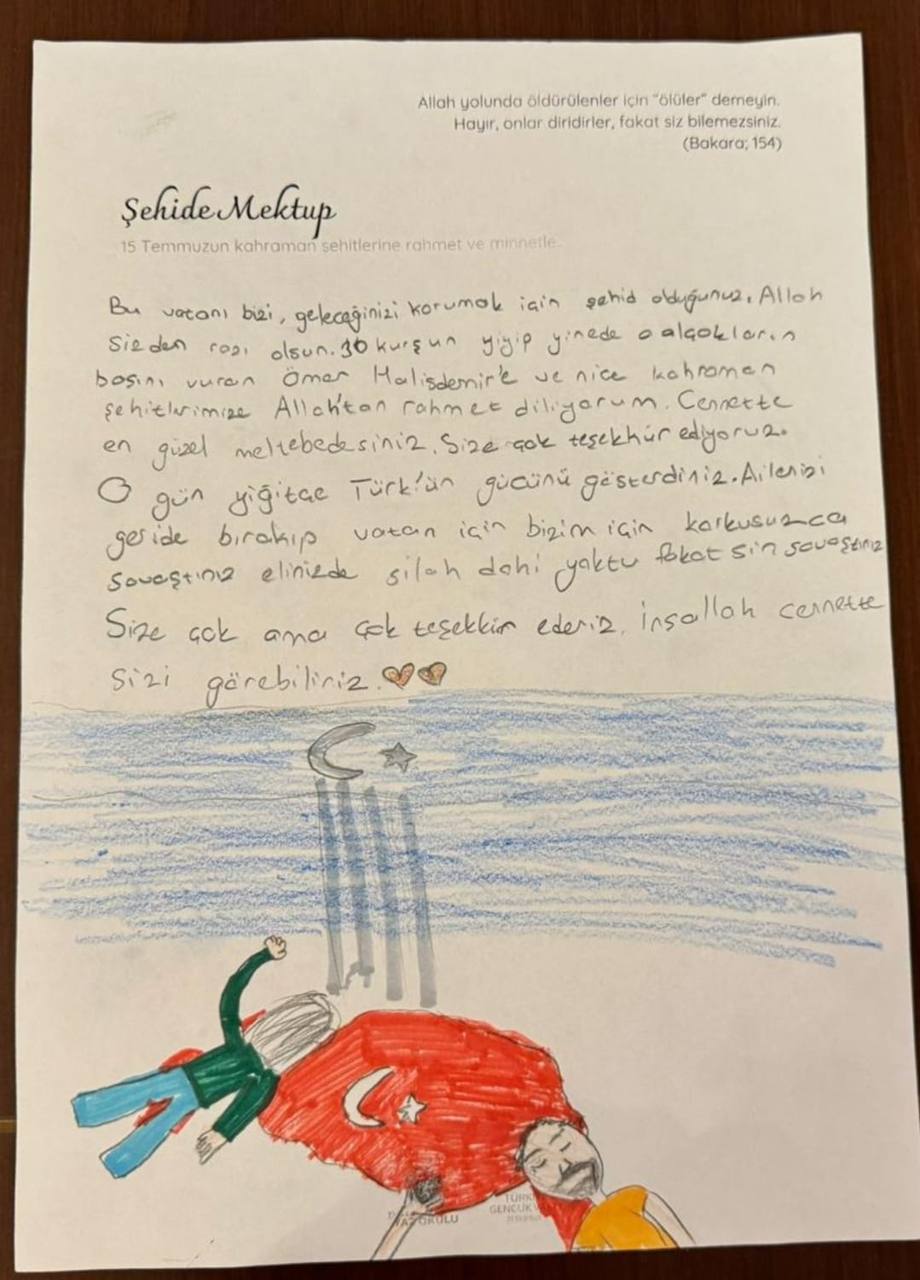 Allah yolunda öldürülenler için "ölüler" demeyin.
Hayır, onlar diridirler, fakat siz bilemezsiniz.
(Bakara; 154)
Şehide Mektup
15 Temmuzun kahraman şehitlerine rahmet ve minnetle.
Bu vatanı bizi, geleceğinizi korumak için şehid olduğunuz. Allah
Sizden razı olsun. 30 kurşun yiyip yinede o alçakların
başını vuran Ömer Halisdemir'e ve nice kahraman
şehitlerimize Allah'tan rahmet diliyorum. Cennette
en güzel meltebedesiniz. Size çok teşekkür ediyoruz.
O gün yiğitçe Türk'ün gücünü gösterdiniz. Ailenizi
geride bırakıp vatan için bizim için korkusuzca
Savaştınız elinizde silah dahi yoktu fakat sin savaştınız
Size çok ama çok teşekkür ederiz. İnşallah cennette
Sizi görebiliriz.
YAZ OKULU
TÜRK
GENÇLİK